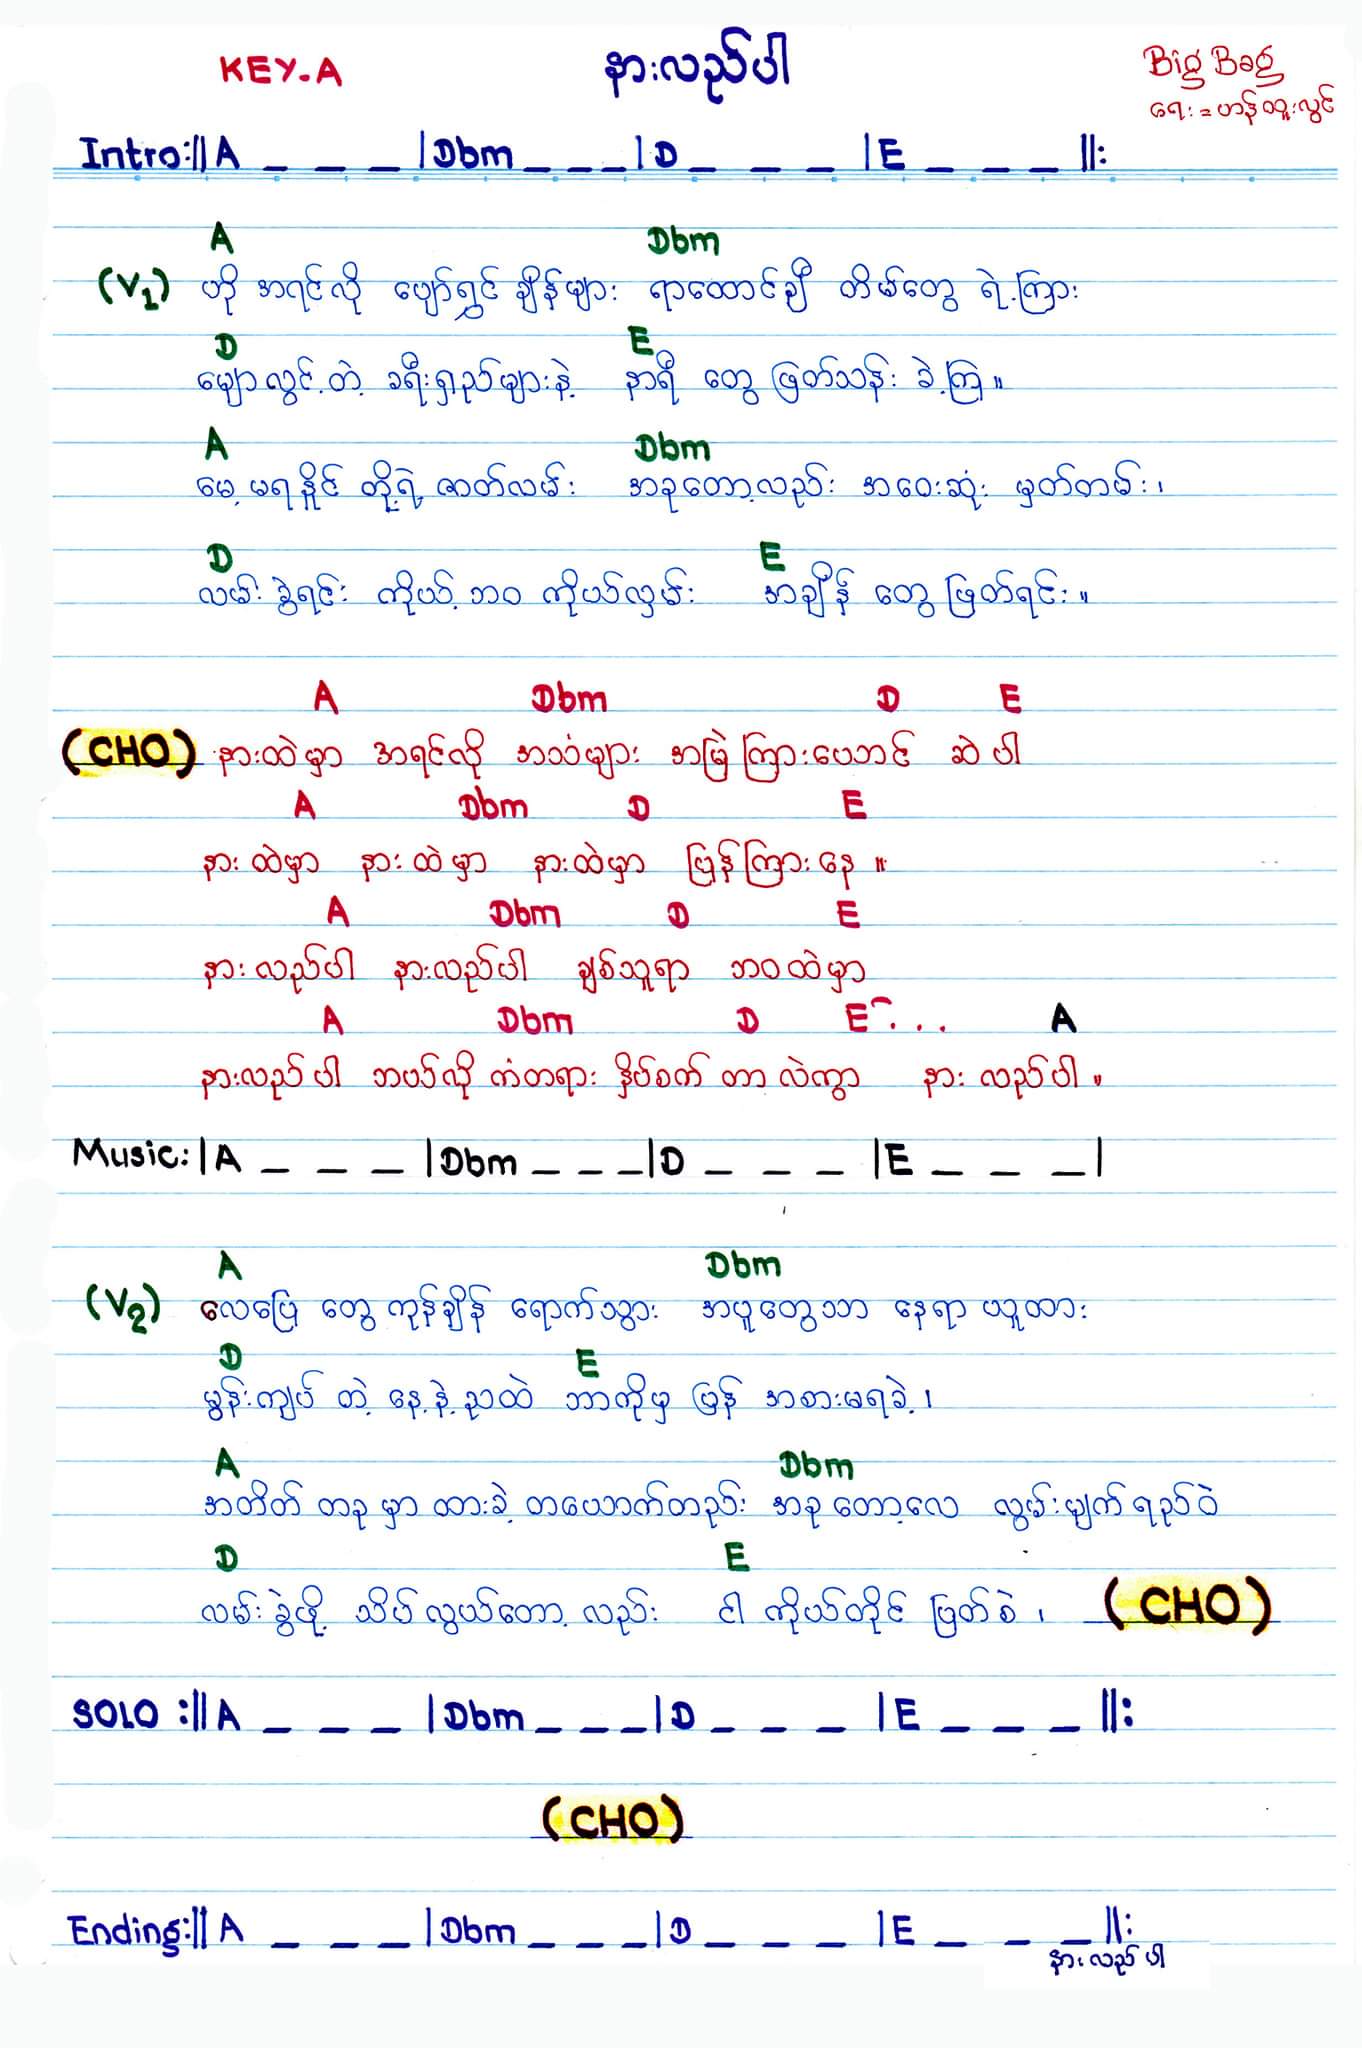 KEY.A နားလည်ပါ Big Bag
ရေး = ဟန်ထူးလွင်
Intro:|| A _ _ _ | Dbm _ _ _ | D _ _ _ | E _ _ _ ||:
A Dbm
(V1) ဟို အရင်လို ပျော်ရွှင် ချိန်များ ရာထောင်ချီ တိမ်တွေ ရဲ့ကြား
D E
မျောလွင့်တဲ့ ခရီးရှည်များနဲ့ နာရီ တွေ ဖြတ်သန်း ခဲ့ကြ။
A Dbm
မေ့မရနိုင် တို့ရဲ့ ဇာတ်လမ်း အခုတော့လည်း အဝေးဆုံး မှတ်တမ်း၊
D E
လမ်းခွဲရင်း ကိုယ့်ဘဝ ကိုယ်လှမ်း အချိန် တွေ ဖြတ်ရင်း။
A Dbm D E
(CHO) နားထဲမှာ အရင်လို အသံများ အမြဲကြားယောင် ဆဲပါ
A Dbm D E
နားထဲမှာ နားထဲမှာ နားထဲမှာ ပြန်ကြားနေ။
A Dbm D E
နားလည်ပါ နားလည်ပါ ချစ်သူရာ ဘဝထဲမှာ
A Dbm D E... A
နားလည်ပါ ဘယ်လို ကံတရား နှိပ်စက် တာလဲကွာ နားလည်ပါ။
Music: | A _ _ _ | Dbm _ _ _ | D _ _ _ | E _ _ _ |
A Dbm
(V2) လေပြေ တွေ ကုန်ချိန် ရောက်သွား အပူတွေသာ နေရာ ယူထား
D E
မွန်းကျပ် တဲ့ နေ့နဲ့ညထဲ ဘာကိုမှ ပြန် အစားမရခဲ့၊
A Dbm
အတိတ် တခု မှာ ထားခဲ့ တယောက်တည်း အခုတော့လေ လွမ်းမျက်ရည်ဝဲ
D E
လမ်းခွဲဖို့ သိပ်လွယ်တော့ လည်း ငါ ကိုယ်တိုင် ဖြတ်စဲ၊ (CHO)
SOLO :|| A _ _ _ | Dbm _ _ _ | D _ _ _ | E _ _ _ ||:
(CHO)
Ending:|| A _ _ _ | Dbm _ _ _ | D _ _ _ | E _ _ _ ||:
နားလည်ပါ